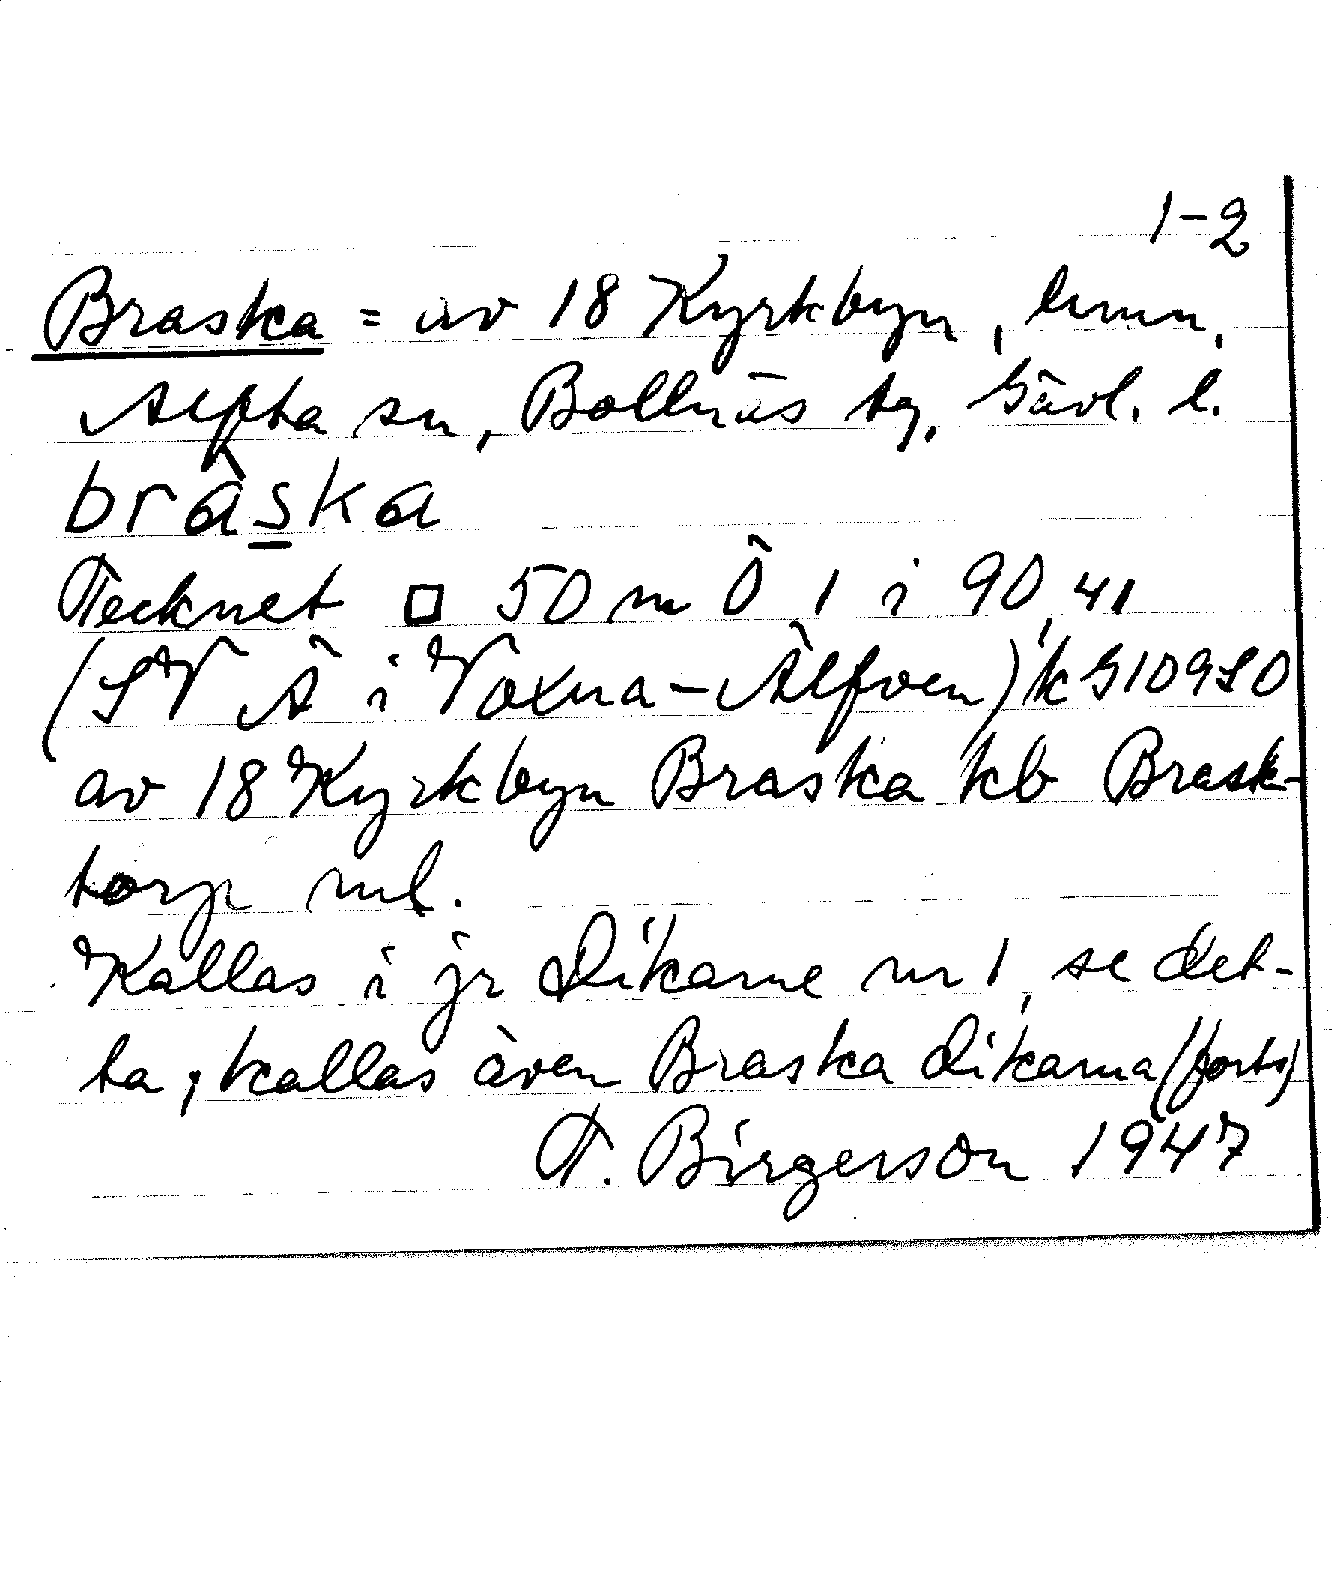 1-2
Braska = av 18 Kyrkbyn, hmn,
Alfta sn, Bollnäs tg, Gävl. l.
bràska
Tecknet □ 50 m Ö 1 i 90,41
(SV Ä i Voxna-Älfven) k G109SO
av 18 Kyrkbyn Braska kb Brask-
torp ml.
Kallas i jr Dikarne nr 1, se det-
ta; kallas även Braska Dikarna (forts)
T. Birgerson 1947